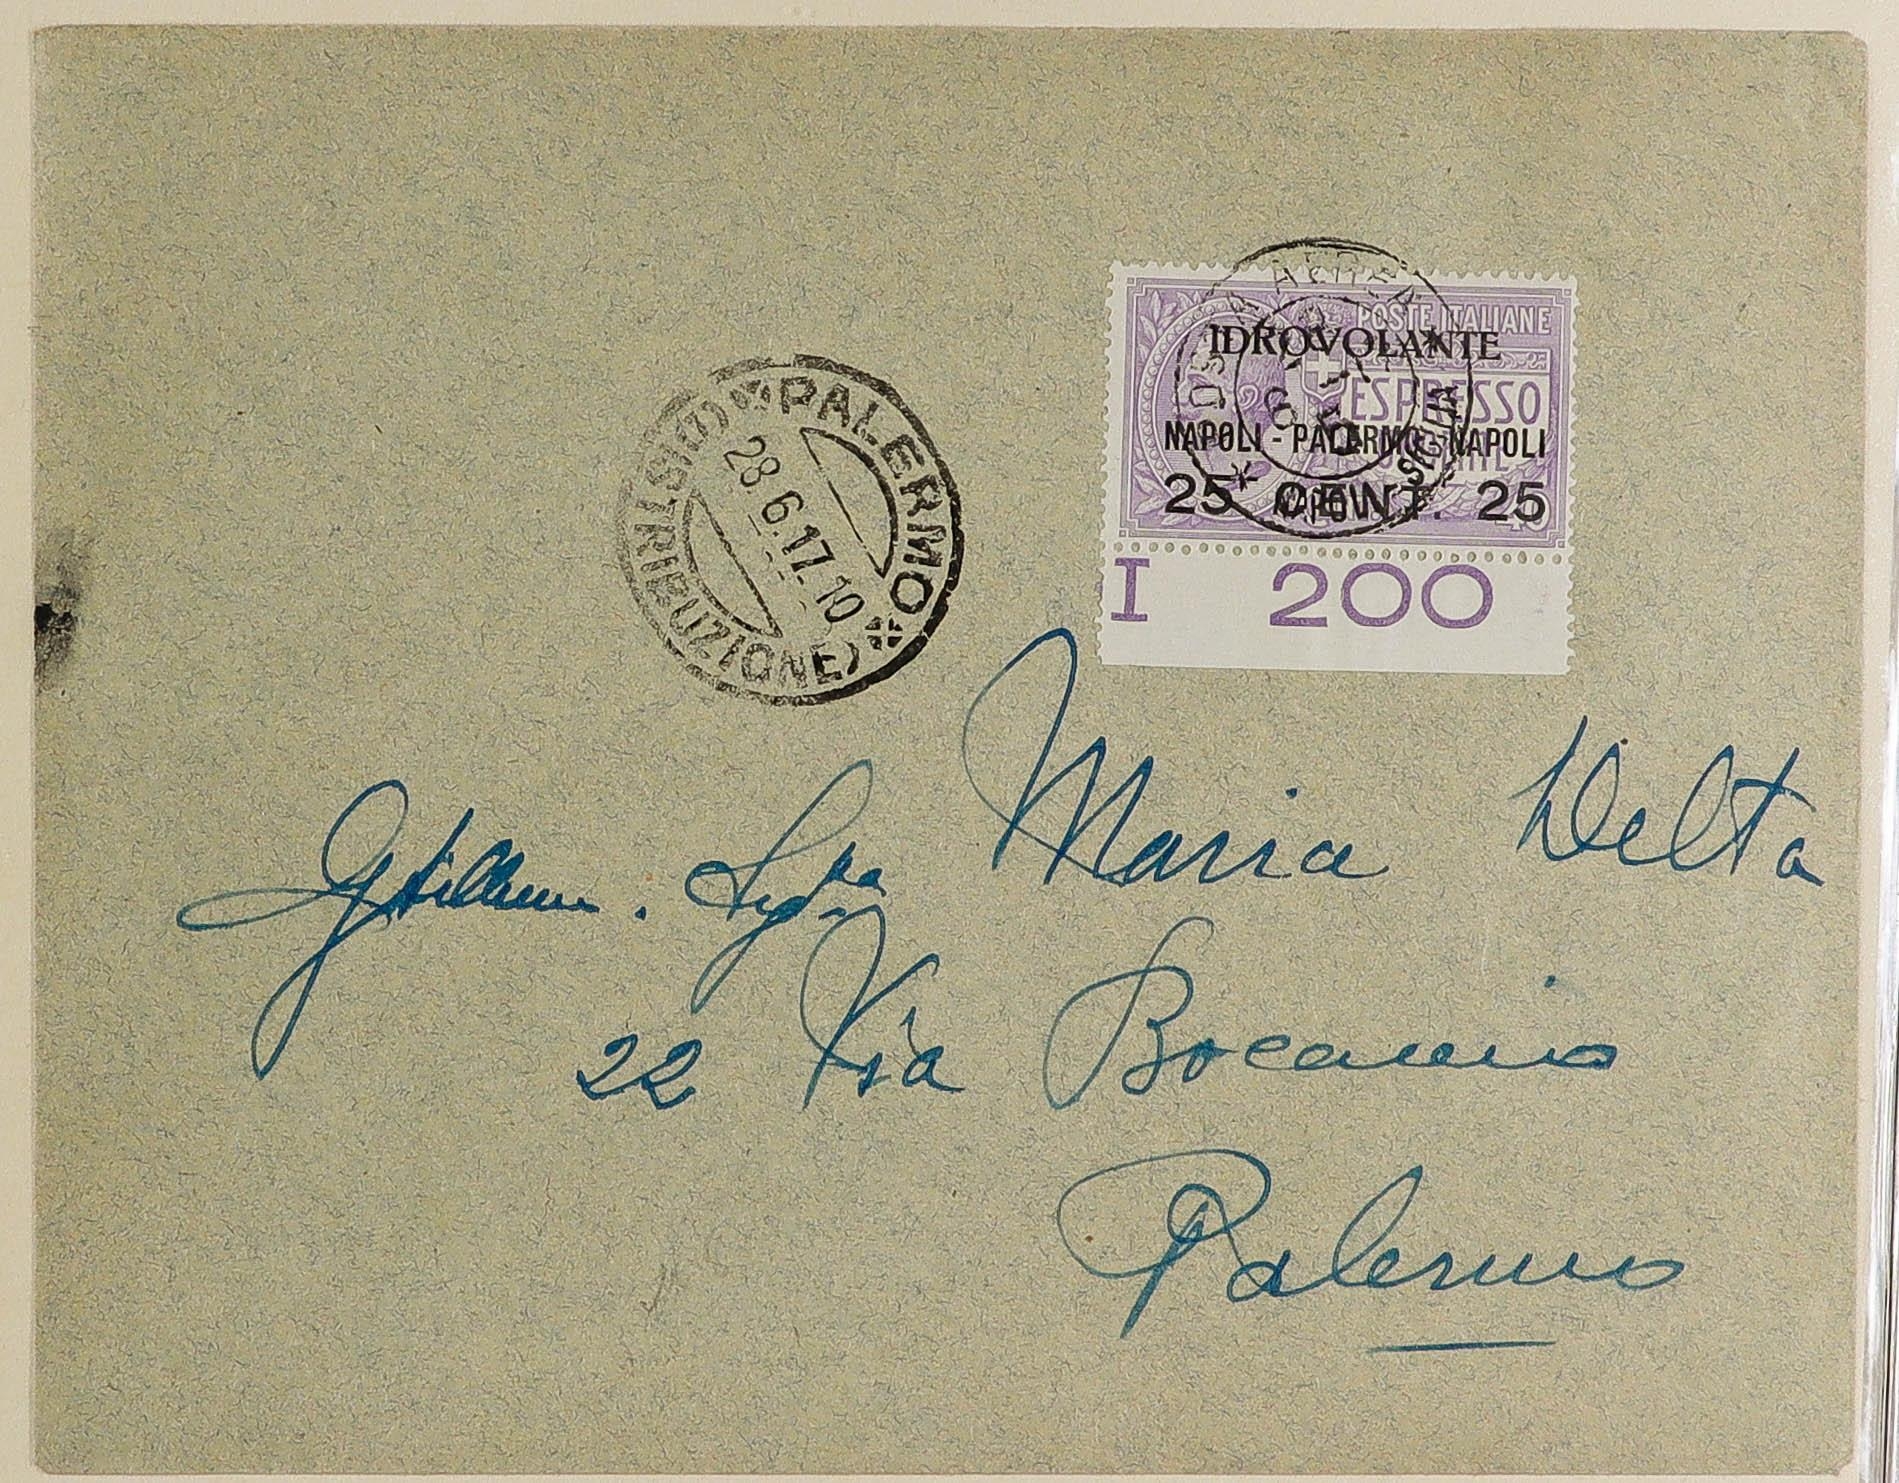 POSTE ITALIANE
IDROVOLANTE
ESPRESSO
NAPOLI - PALERMO - NAPOLI
25 CENT. 25
I 200
PALERMO
(DISTRIBUZIONE)
28.6.17.10
NAPOLI
Sigra Maria Delta
22 Via Bocaccio
Palermo